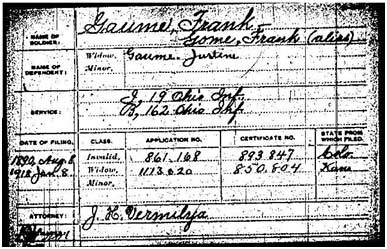 NAME OF SOLDIER: Gaume, Frank
Gome, Frank (alias)
NAME OF DEPENDENT: Widow, Gaume, Justine
Minor,
SERVICE: I, 19 Ohio Inf.
B, 162 Ohio Inf.
DATE OF FILING. CLASS. APPLICATION NO. CERTIFICATE NO. STATE FROM WHICH FILED.
1890, Aug. 8 Invalid, 861.168 893.847
1918 Jan. 8. Widow, 1113.620 850.804 Kans
Minor,
ATTORNEY: J. H. Vermilya